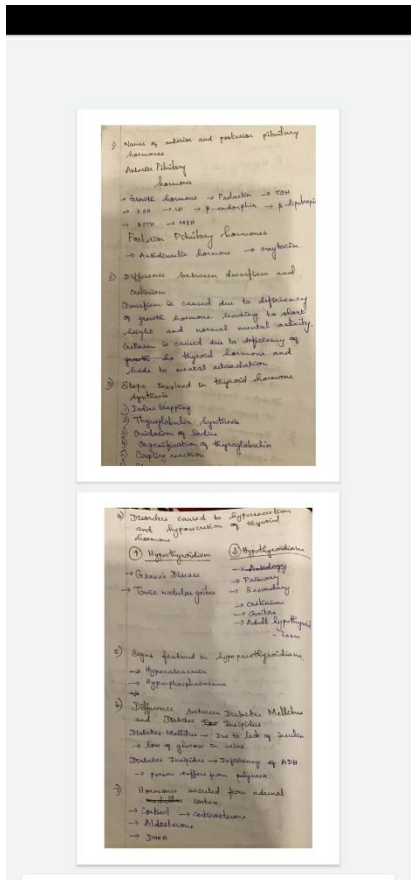 1) Names of anterior and posterior pituitary
hormones
Anterior Pituitary
hormones
→ Growth hormone → Prolactin → TSH
→ FSH → LH → β-endorphin → β-lipotropin
→ ACTH → MSH
Posterior Pituitary hormones
→ Antidiuretic hormone → oxytocin
2) Difference between dwarfism and
cretinism
Dwarfism is caused due to deficiency
of growth hormone leading to short
height and normal mental activity.
Cretinism is caused due to deficiency of
thyroid hormone and
leads to mental retardation
3) Steps involved in thyroid hormone
synthesis
1) Iodine trapping
Thyroglobulin synthesis
Oxidation of Iodine
Organification of thyroglobulin
Coupling reaction
4) Disorders caused to hypersecretion
and hyposecretion of thyroid
hormone
① Hyperthyroidism ② Hypothyroidism
→ Grave's Disease
→ Primary
→ Toxic nodular goitre → Secondary
→ Cretinism
→ Goitre
→ Adult hypothyroid
5) Signs featured in hypoparathyroidism
→ Hypocalcaemia
→ Hyperphosphataemia
6) Difference between Diabetes Mellitus
and Diabetes Insipidus
Diabetes Mellitus — Due to lack of insulin
→ loss of glucose in urine.
Diabetes Insipidus → Deficiency of ADH
→ person suffers from polyurea
7) Hormones secreted from adrenal
cortex
→ Cortisol → corticosterone
→ Aldosterone
→ DHEA